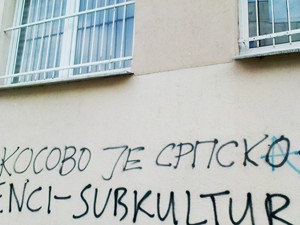 КОСОВО ЈЕ СРПСКО-
ENCI-SUBKULTUR